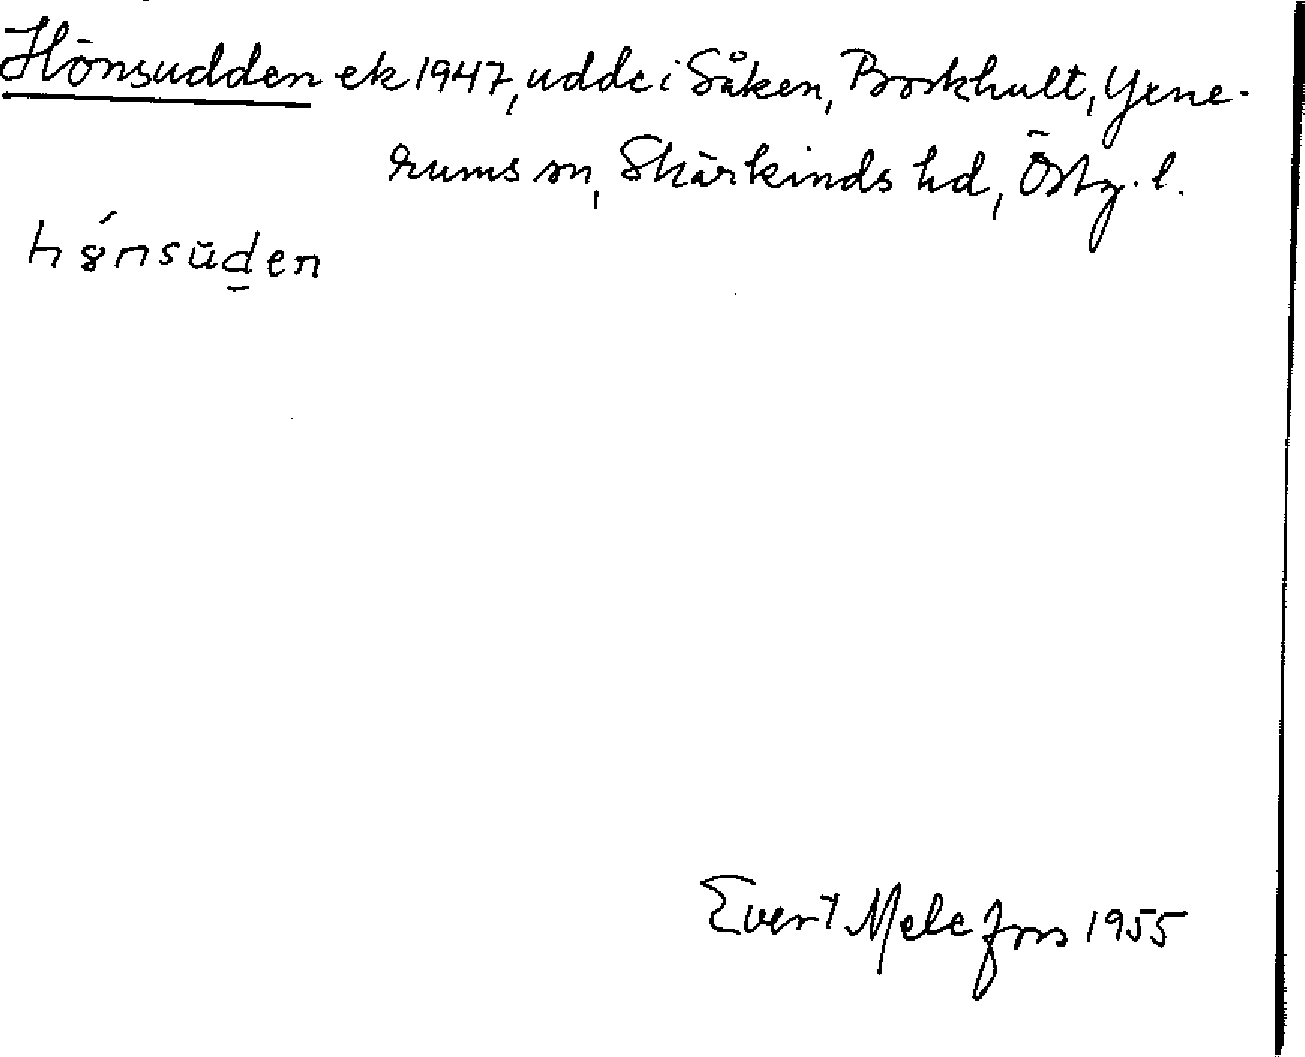 Hönsudden ek 1947, udde i Såken, Borkhult, Yxne-
rums sn, Skärkinds hd, Östg. l.
hǿnsŭd̠en
Evert Melefors 1955